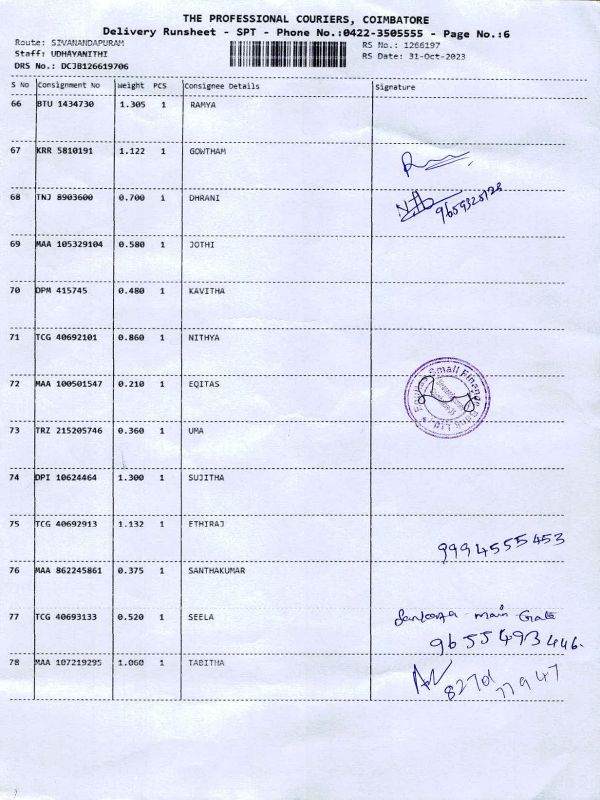 THE PROFESSIONAL COURIERS, COIMBATORE
Delivery Runsheet - SPT - Phone No.:0422-3505555 - Page No.:6
Route: SIVANANDAPURAM
Staff: UDHAYANITHI
DRS No.: DCJB126619706
RS No.: 1266197
RS Date: 31-Oct-2023
S No Consignment No Weight PCS Consignee Details Signature
66 BTU 1434730 1.305 1 RAMYA
67 KRR 5810191 1.122 1 GOWTHAM
68 TNJ 8903600 0.700 1 DHRANI
69 MAA 105329104 0.580 1 JOTHI
70 DPM 415745 0.480 1 KAVITHA
71 TCG 40692101 0.860 1 NITHYA
72 MAA 100501547 0.210 1 EQITAS
Small Finance Bank Ltd.
73 TRZ 215205746 0.360 1 UMA
74 DPI 10624464 1.300 1 SUJITHA
75 TCG 40692913 1.132 1 ETHIRAJ
9994555453
76 MAA 862245861 0.375 1 SANTHAKUMAR
77 TCG 40693133 0.520 1 SEELA
main Gate
9655493446.
78 MAA 107219295 1.060 1 TABITHA